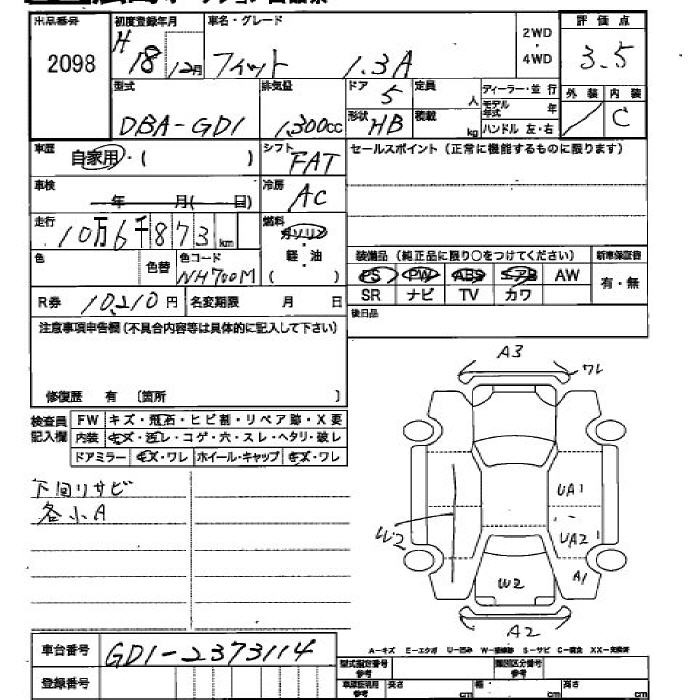 出品番号 初度登録年月 車名・グレード 2WD・4WD 評価点
2098 H 18 12月 フィット 1.3A 3.5
型式 排気量 ドア 5 定員 人 ディーラー・並行 外装 内装
モデル年式 年
DBA-GD1 1,300cc 形状 HB 積載 kg ハンドル 左・右 C
車歴 自家用・( ) シフト FAT セールスポイント(正常に機能するものに限ります)
車検 年 月( 日) 冷房 AC
走行 10万6千873km 燃料 ガソリン
軽・油
( )
装備品(純正品に限り○をつけてください) 新車保証書
色 色替 色コード NH700M PS PW ABS エアB AW 有・無
R券 10,210円 名変期限 月 日 SR ナビ TV カワ
注意事項申告欄(不具合内容等は具体的に記入して下さい) 後日品
修復歴 有 〔箇所 〕
検査員記入欄 FW キズ・飛石・ヒビ割・リペア跡・X要
内装 キズ・汚レ・コゲ・穴・スレ・ヘタリ・破レ
ドアミラー キズ・ワレ ホイール・キャップ キズ・ワレ
下回リサビ
各小A
A3
ワレ
UA1
W2 UA2
W2 A1
A2
車台番号 GD1-2373114
A-キズ E-エクボ U-凹み W-補修跡 S-サビ C-腐食 XX-交換済
登録番号 型式指定番号 参考 類別区分番号 参考
車庫証明用 参考 長さ cm 幅 cm 高さ cm